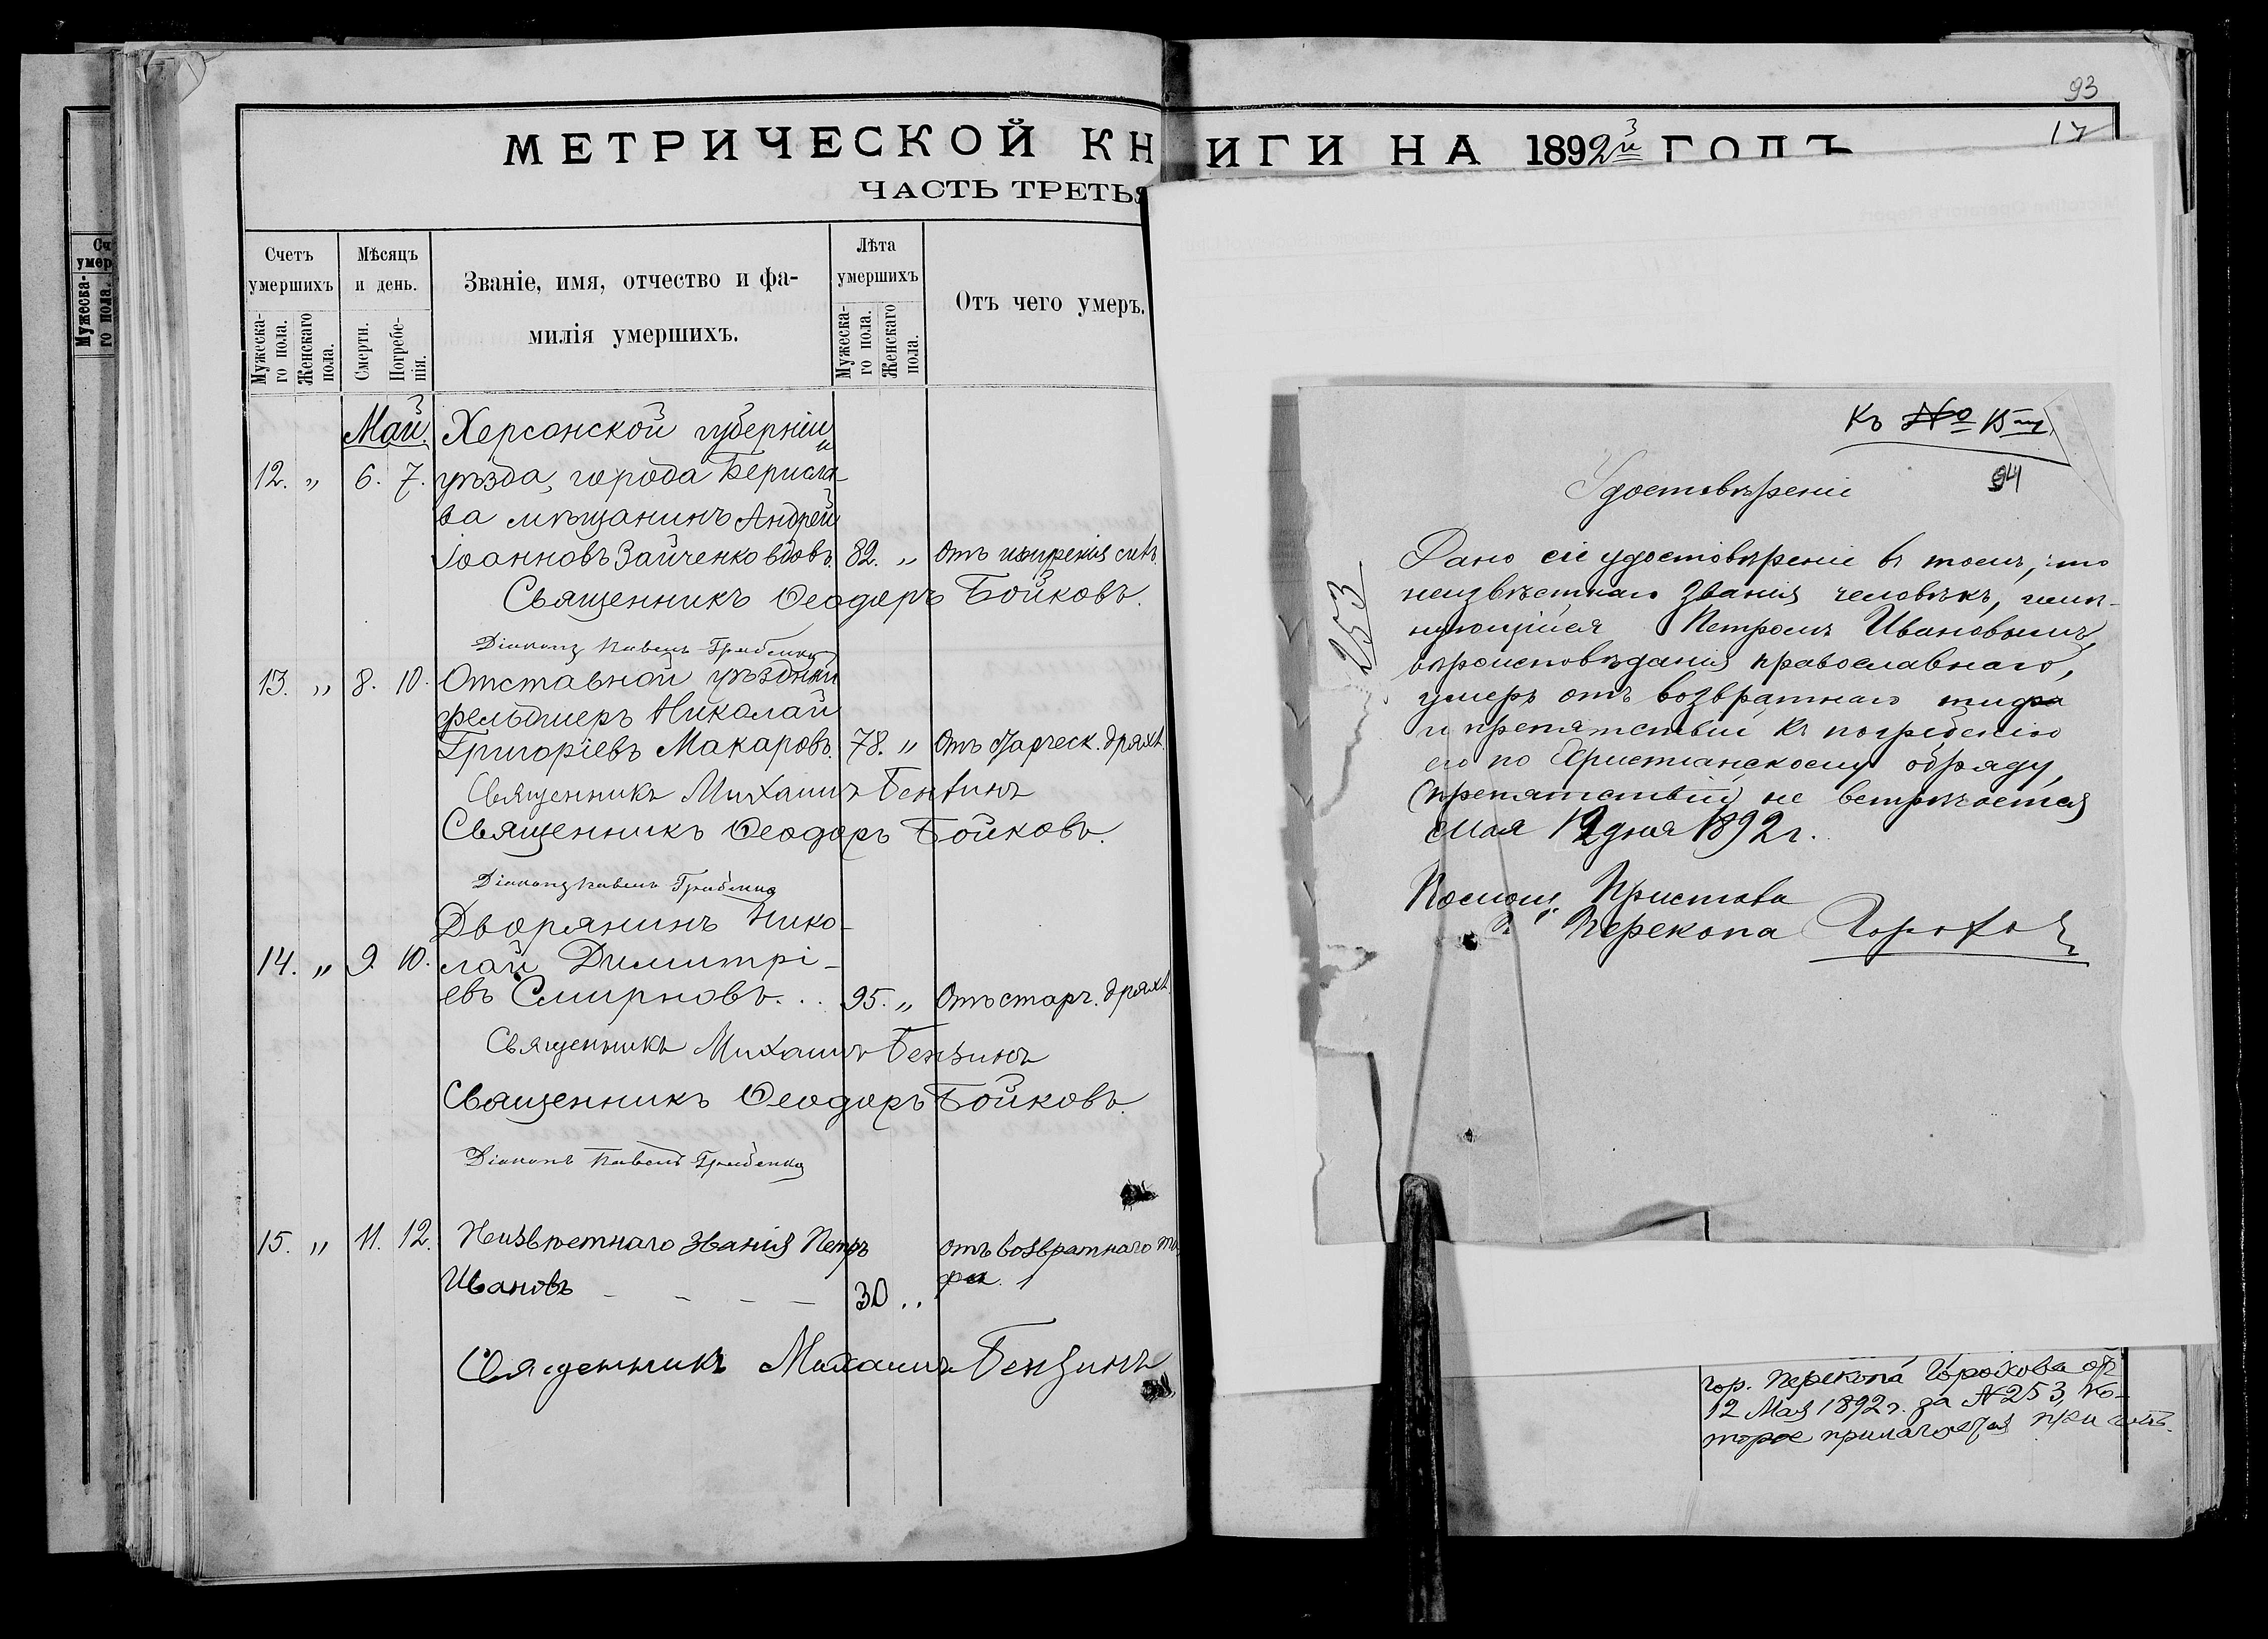 МЕТРИЧЕСКОЙ КН
ЧАСТЬ ТРЕТЬЯ
Счетъ умершихъ
Мужеска-го пола.
Женскаго пола.
Мѣсяцъ и день.
Смерти.
Погребе-нія.
Званіе, имя, отчество и фа-
милія умершихъ.
Лѣта умершихъ
Мужеска-го пола.
Женскаго пола.
Отъ чего умеръ.
Май. Херсонской губерніи
12. „ 6. 7. уѣзда, города Берисла-
ва мѣщанинъ Андрей
Іоанновъ Зайченко вдовъ. 82. „ Отъ
Священникъ Ѳеодоръ Бойковъ.
Діаконъ Павелъ
13. „ 8. 10. Отставной уѣздный
фельдшеръ Николай
Григоріевъ Макаровъ. 78. „ Отъ старческ. дряхл.
Священникъ Михаилъ Бензинъ
Священникъ Ѳеодоръ Бойковъ.
Діаконъ Павелъ
Дворянинъ Нико-
14. „ 9. 10. лай Димитрі-
евъ Смирновъ. . . 95. „ Отъ старч. дряхл.
Священникъ Михаилъ Бензинъ
Священникъ Ѳеодоръ Бойковъ.
Діаконъ Павелъ
15. „ 11. 12. Неизвѣстнаго званія Петръ отъ возвратнаго ти
Ивановъ - - - - 30 „ фа.
Священникъ Михаилъ Бензинъ
93
ИГИ НА 1892й ГОДЪ
17
Къ № 15му.
94
Удостовѣреніе
253
Дано сіе удостовѣреніе въ томъ, что
неизвѣстнаго званія человѣкъ, имѣ-
нующійся Петромъ Ивановымъ,
вѣроисповѣданія православнаго,
умеръ отъ возвратнаго тифа
и препятствій къ погребенію
его по Христіанскому обряду,
(препятствій) не встрѣчается
Мая 12 дня 1892 г.
Помощ. Пристава
г. Перекопа Гороховъ
гор. Перекопа Горохова отъ
12 Мая 1892 г. за № 253, ко-
торое прилагается при